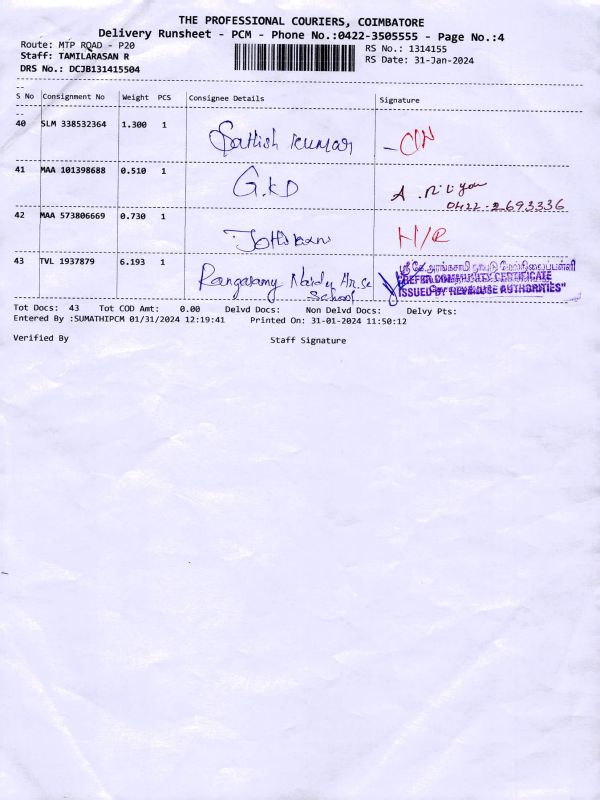 THE PROFESSIONAL COURIERS, COIMBATORE
Delivery Runsheet - PCM - Phone No.:0422-3505555 - Page No.:4
Route: MTP ROAD - P20
RS No.: 1314155
Staff: TAMILARASAN R
RS Date: 31-Jan-2024
DRS No.: DCJB131415504
S No Consignment No Weight PCS Consignee Details Signature
40 SLM 338532364 1.300 1 Sathish Kumar - CIN
41 MAA 101398688 0.510 1 G.KD A
0422-2693336
42 MAA 573806669 0.730 1 H/R
43 TVL 1937879 6.193 1 Rangasamy Naidu Hr.Sc
School
"REFER COMMUNITY CERTIFICATE
ISSUED BY REVENUE AUTHORITIES"
Tot Docs: 43 Tot COD Amt: 0.00 Delvd Docs: Non Delvd Docs: Delvy Pts:
Entered By :SUMATHIPCM 01/31/2024 12:19:41 Printed On: 31-01-2024 11:50:12
Verified By Staff Signature